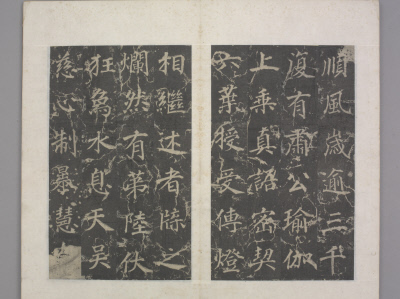 順風歲逾三千
復有肅公瑜伽
上乘真語密契
六葉授受傳燈
相繼述者牒之
爛然有第陸伏
狂象水息天吳
慈心制暴慧